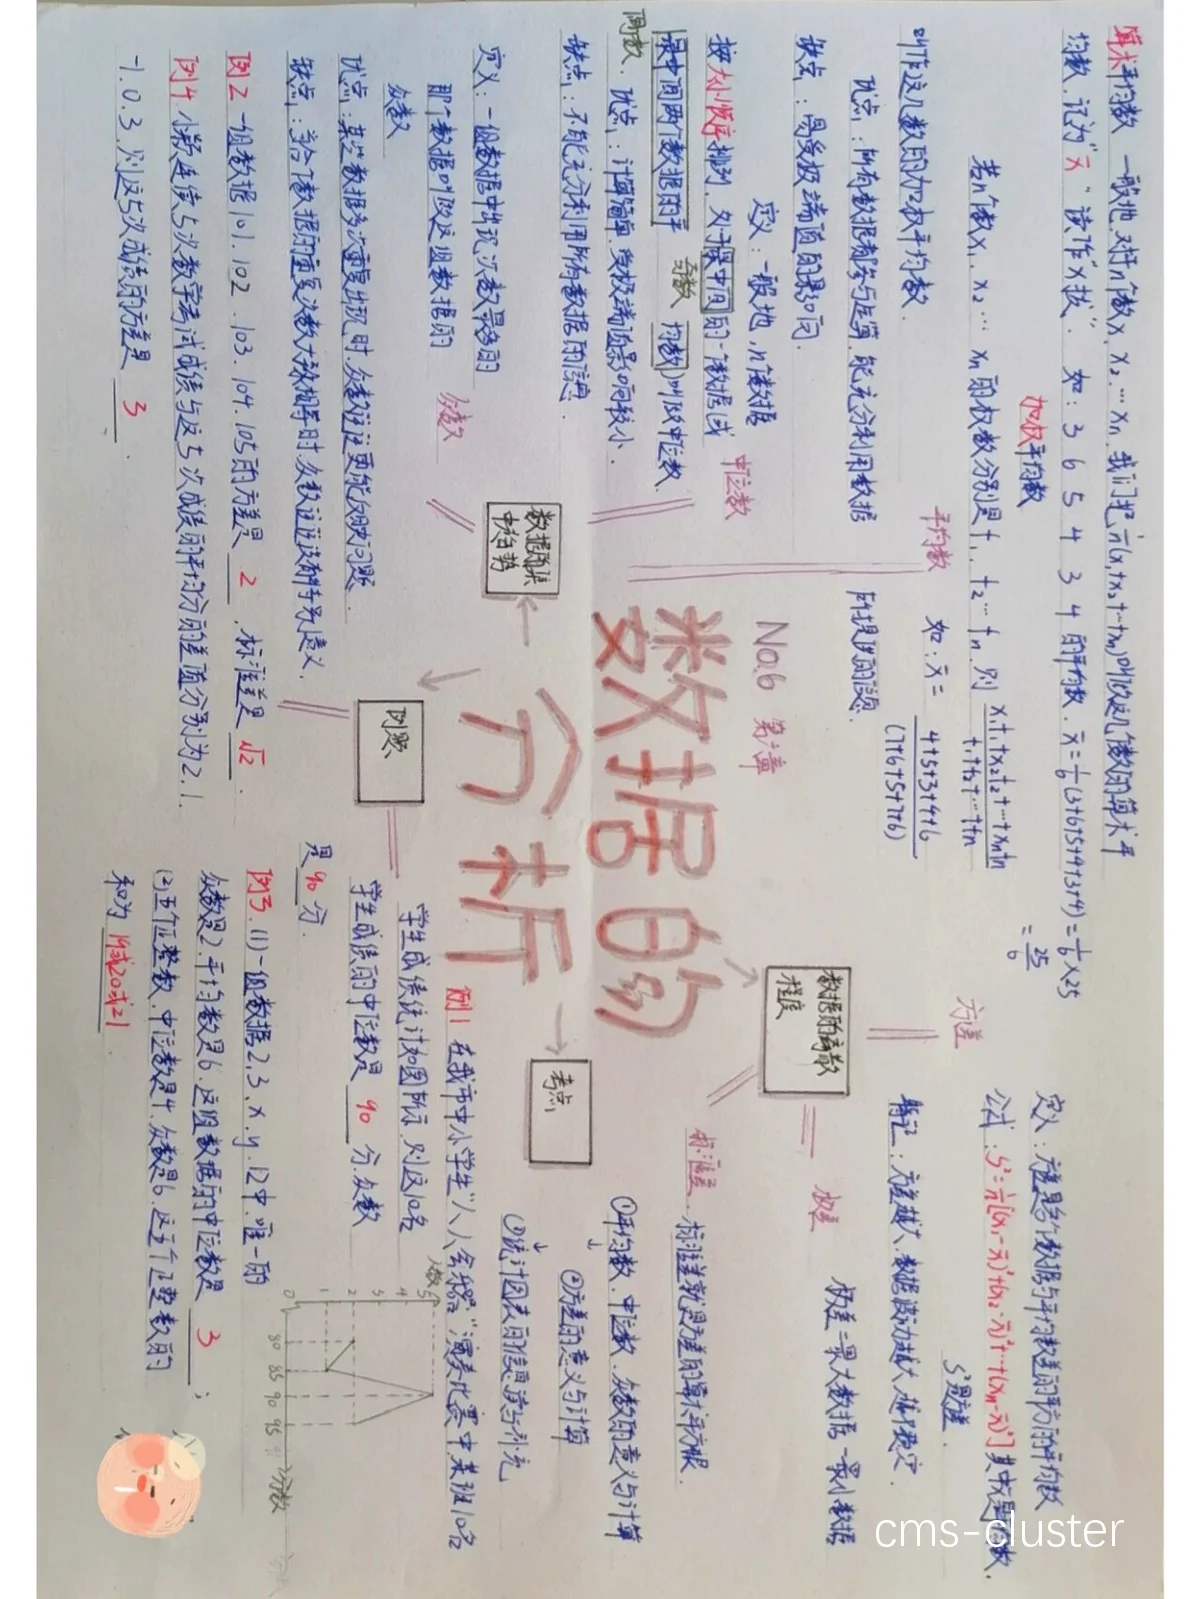 算术平均数 一般地,对于n个数x₁ x₂…xn,我们把1/n(x₁+x₂+…+xn)叫做这几个数的算术平
均数,记为"x̄"读作"x拔". 如:3 6 5 4 3 4的平均数. x̄=1/6(3+6+5+4+3+4)=1/6×25
=25/6
加权平均数
若n个数x₁、x₂… xn的权数分别是f₁、f₂…fn,则 x₁f₁+x₂f₂+…+xnfn/f₁+f₂+…+fn
叫作这几数的加权平均数.
平均数
如:x̄= 4+5+3+4+6/(7+6+5+7+6)
优点:所有数据都参与运算,能充分利用数据
所提供的信息.
缺点:易受极端值的影响.
中位数
定义:一般地,n个数据
按大小顺序排列,处于最中间的一个数据(或
奇数
最中间两个数据的平均数)叫做中位数.
偶数
优点:计算简单,受极端值影响较小.
缺点:不能充分利用所有数据的信息.
众数
定义:一组数据中出现次数最多的
那个数据叫做这组数据的
众数
优点:某些数据多次重复出现时,众数往往更能反映问题.
缺点:当各个数据的重复次数大致相等时,众数往往没有特别意义.
数据的集
中趋势
No.6 第六章
数据的
分析
数据的离散
程度
方差
定义:方差是各个数据与平均数差的平方的平均数
公式:S²=1/n[(x₁-x̄)²+(x₂-x̄)²+…+(xn-x̄)²]其中x̄是平均数,
S²是方差.
特征:方差越大,数据波动越大,越不稳定.
极差
极差=最大数据-最小数据
标准差
标准差就是方差的算术平方根.
考点
①平均数、中位数、众数的意义与计算
↓
②方差的意义与计算
↓
③统计图表的信息读与补充
例题
例1 在我市中小学生"八八会我器"演奏比赛中,某班10名
学生成绩统计如图所示,则这10名
学生成绩的中位数是 90 分,众数
是90分.
人数
5
4
3
2
1
0
80 85 90 95 分数
例2 一组数据101、102、103、104、105的方差是 2 ,标准差是 √2 .
例3.(1)一组数据2,3,x,y,12中,唯一的
众数是2,平均数是6,这组数据的中位数是 3 ;
(2)五个正整数,中位数是4,众数是6,这五个正整数的
和为 19或20或21 .
例4 小颖连续5次数学考试成绩与这5次成绩的平均分的差值分别为2、1、
-1、0、3,则这5次成绩的方差是 3 .
cms-cluster